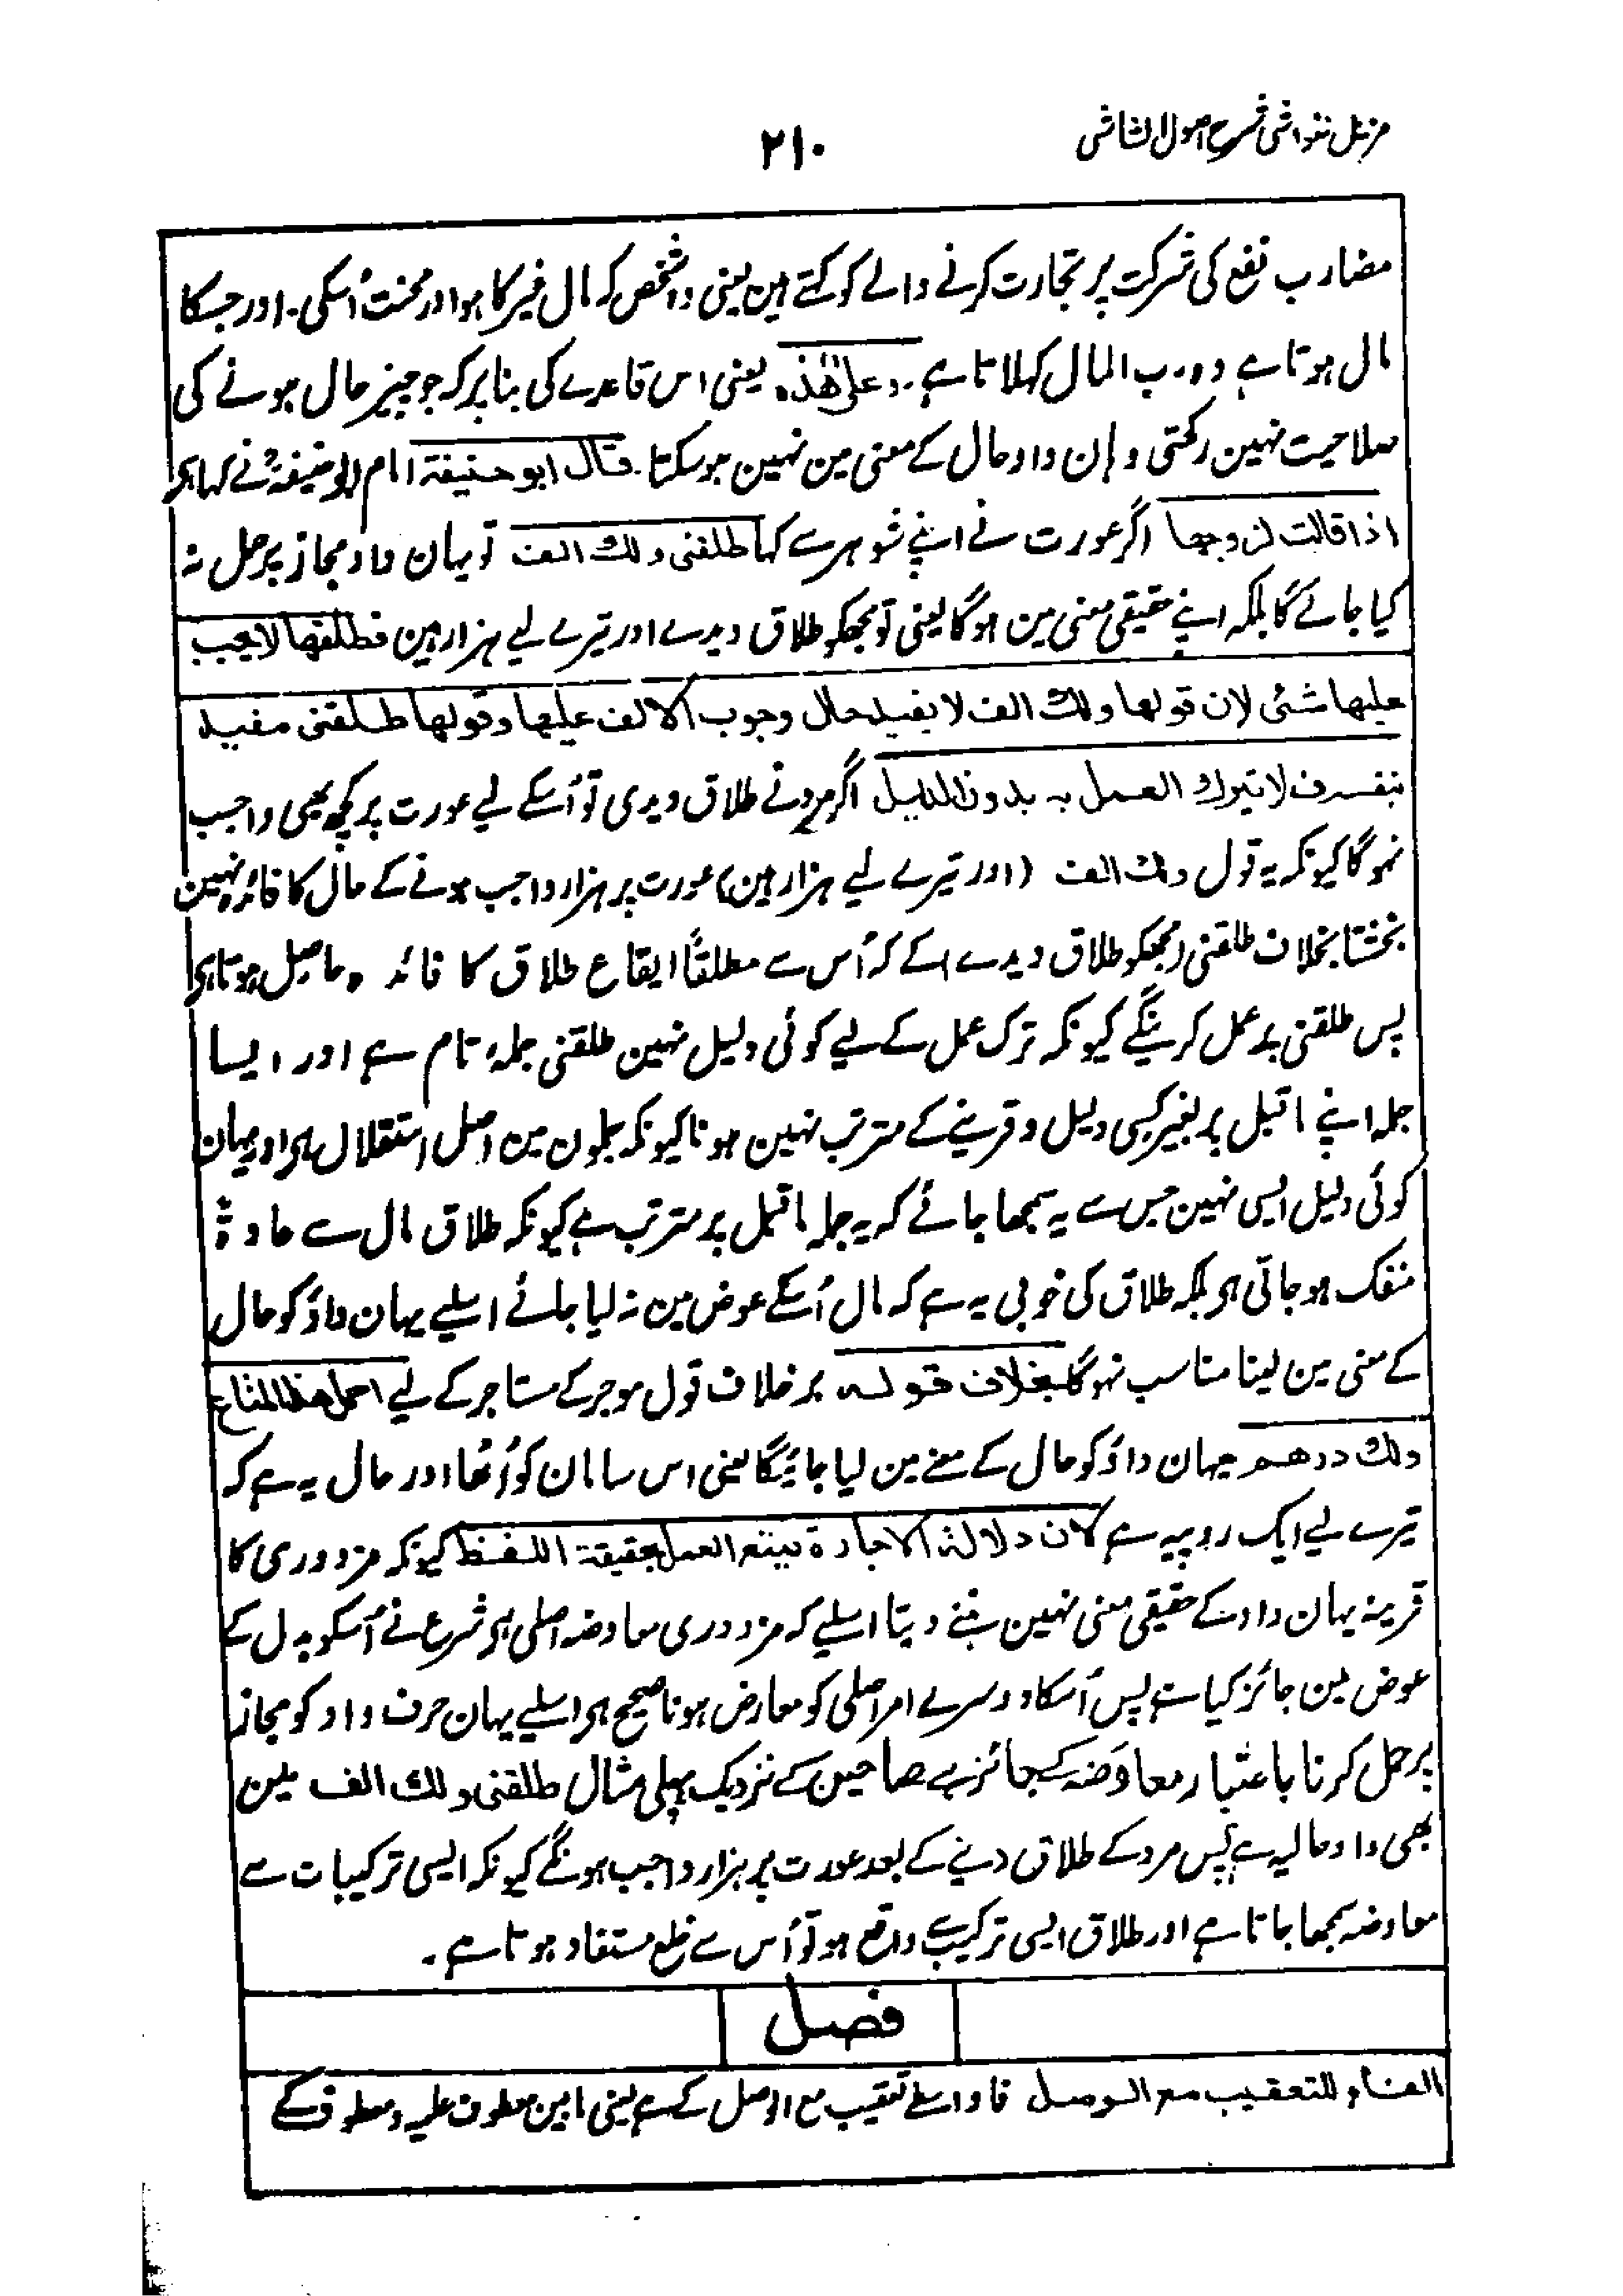 مزیل الغواشی شرح اصول الشاشی
۲۱۰
مضارب نفع کی شرکت پر تجارت کرنے والے کو کہتے ہین یعنی وہ شخص کہ مال غیر کا ہو اور محنت اُسکی۔ اور جسکا
مال ہوتا ہے وہ رب المال کہلاتا ہے۔ وعلی ھذہ یعنی اس قاعدے کی بنا پر کہ جو چیز حال ہونے کی
صلاحیت نہین رکھتی وہان واو حال کے معنی مین نہین ہوسکتا۔ قال ابو حنیفۃ امام ابو حنیفہؒ نے کہا ہی
اذا قالت لزوجھا اگر عورت نے اپنے شوہر سے کہا طلقنی ولك الف تو یہان واو مجاز پر حمل نہ
کیا جائے گا بلکہ اپنے حقیقی معنی مین ہوگا یعنی تو مجھکو طلاق دیدے اور تیرے لیے ہزار ہین فطلقھا لا یجب
علیھا شئی لان قولھا ولك الف لا یفید حال وجوب الالف علیھا وقولھا طلقنی مفید
بنفسہ فلا یترك العمل بہ بدون الدلیل اگر مرد نے طلاق دیدی تو اُسکے لیے عورت پر کچھ بھی واجب
نہوگا کیونکہ یہ قول ولك الف (اور تیرے لیے ہزار ہین) عورت پر ہزار واجب ہونے کے حال کا فائدہ نہین
بخشتا بخلاف طلقنی (مجھکو طلاق دیدے) کے کہ اُس سے مطلقاً ایقاع طلاق کا فائدہ حاصل ہوتا ہی
پس طلقنی پر عمل کرینگے کیونکہ ترک عمل کے لیے کوئی دلیل نہین طلقنی جملہ تام ہے اور ایسا
جملہ اپنے ماقبل پر بغیر کسی دلیل و قرینے کے مترتب نہین ہوتا کیونکہ جملون مین اصل استقلال ہی اور یہان
کوئی دلیل ایسی نہین جس سے یہ سمجھا جائے کہ یہ جملہ ماقبل پر مترتب ہے کیونکہ طلاق مال سے عادۃً
منفک ہوجاتی ہی بلکہ طلاق کی خوبی یہ ہے کہ مال اُسکے عوض مین نہ لیا جائے اسلیے یہان واؤ کو حال
کے معنی مین لینا مناسب نہوگا بخلاف قولہ برخلاف قول موجر کے مستاجر کے لیے احمل ھذا المتاع
ولك درھم یہان واؤ کو حال کے معنے مین لیا جائیگا یعنی اس سامان کو اُٹھا اور حال یہ ہے کہ
تیرے لیے ایک روپیہ ہے لان دلالۃ الاجارۃ یمنع العمل بحقیقۃ اللفظ کیونکہ مزدوری کا
قرینہ یہان واو کے حقیقی معنی نہین بننے دیتا اسلیے کہ مزدوری معاوضہ اصلی ہی شرع نے اُسکو بدل کے
عوض مین جائز کیا ہے پس اُسکا دوسرے امر اصلی کو معارض ہونا صحیح ہی اسلیے یہان حرف واو کو مجاز
پر حمل کرنا باعتبار معاوَضہ کے جائز ہے صاحبین کے نزدیک پہلی مثال طلقنی ولك الف مین
بھی واو حالیہ ہے پس مرد کے طلاق دینے کے بعد عورت پر ہزار واجب ہونگے کیونکہ ایسی ترکیبات سے
معاوضہ سمجھا جاتا ہے اور طلاق ایسی ترکیب سے واقع ہو تو اُس سے خلع مستفاد ہوتا ہے۔
فصل
الفاء للتعقیب مع الوصل فا واسطے تعقیب مع الوصل کے ہے یعنی مابین معطوف علیہ و معطوف کے